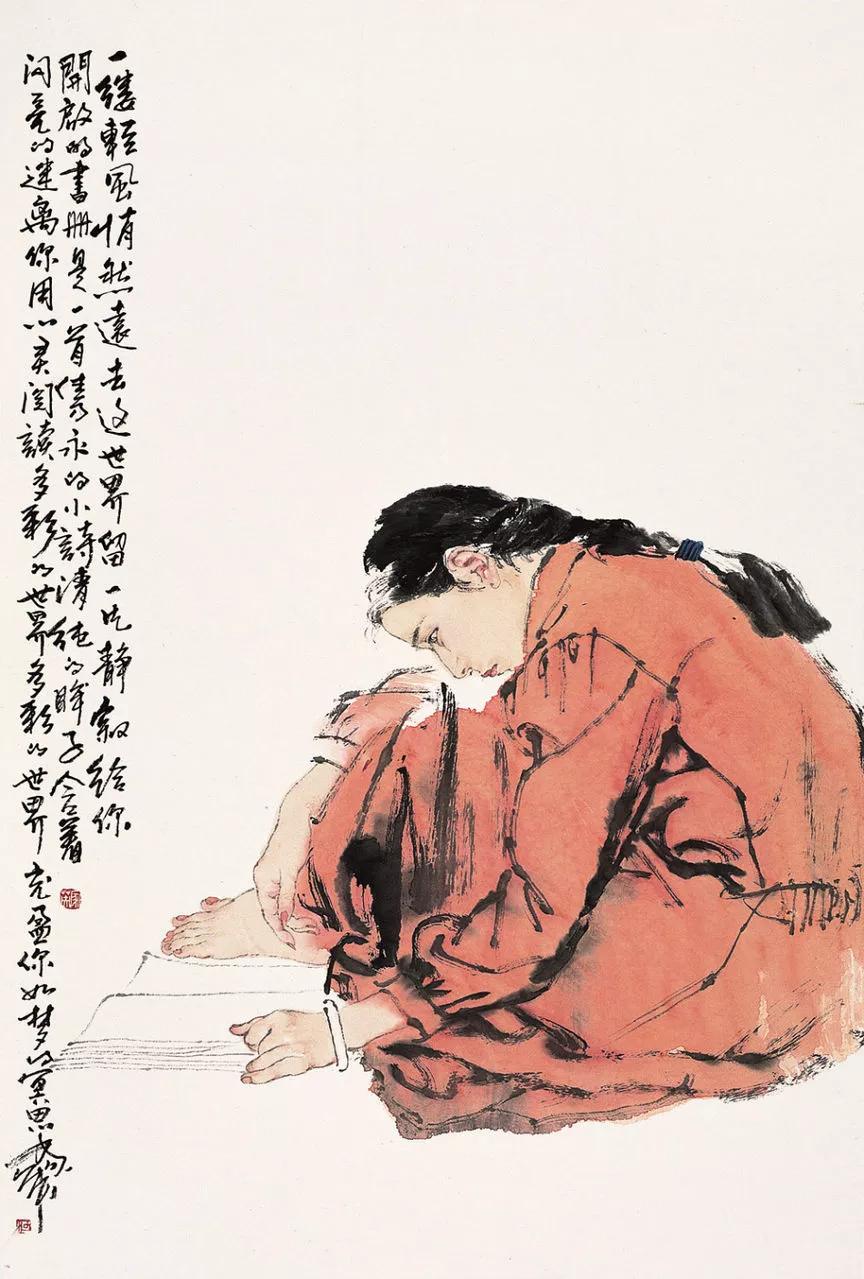 一缕輕風悄然遠去这世界留一片静寂给你
開啟的書册是一首隽永的小詩清純的眸子含着
闪亮的迷离你用心灵阅讀多彩的世界多彩的世界充盈你如梦的冥思